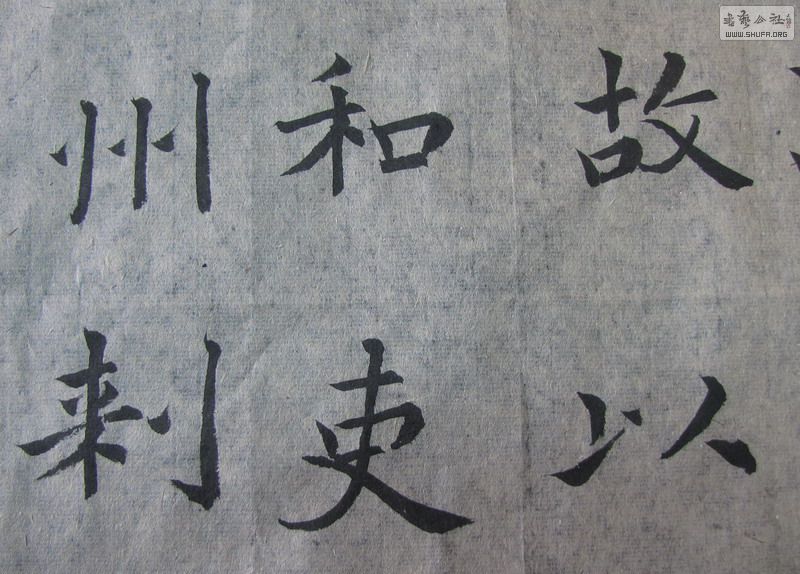 故以
和吏
州刺
書藝公社
WWW.SHUFA.ORG